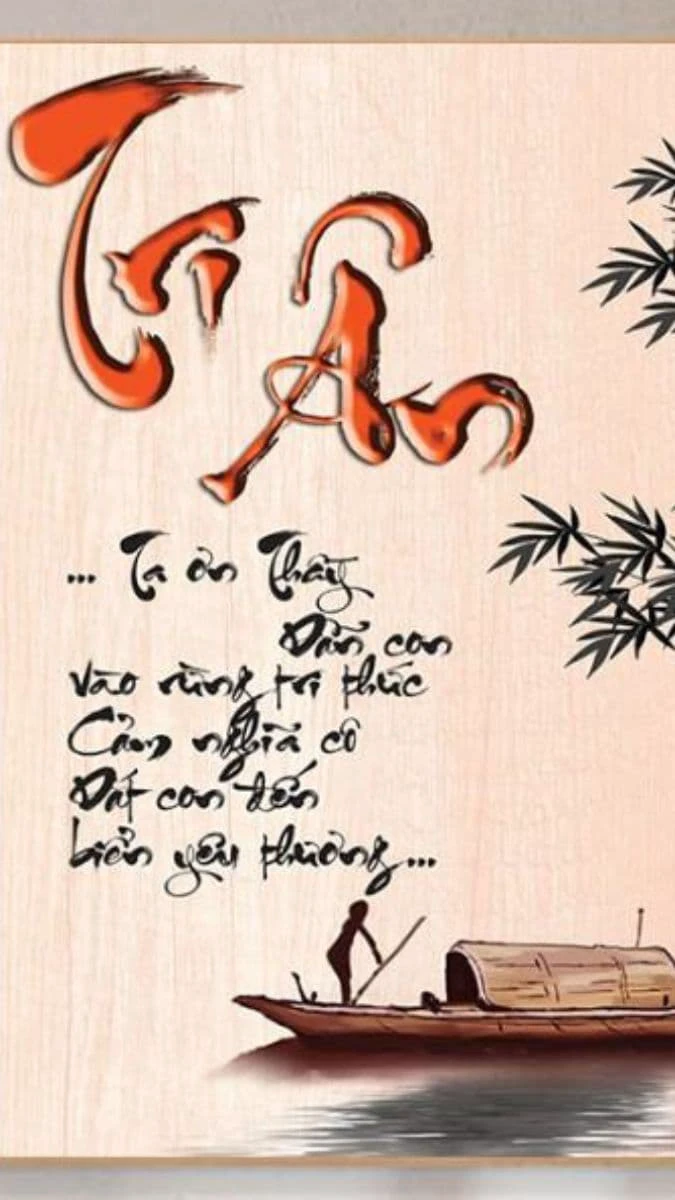 Tri
Ân
... Tạ ơn Thầy
Dẫn con
vào rừng tri thức
Cảm nghĩa cô
Dắt con đến
biển yêu thương...